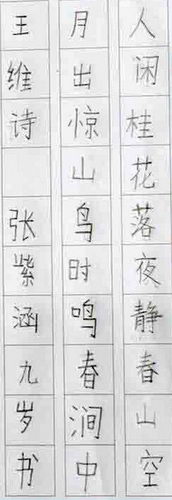 人闲桂花落夜静春山空
月出惊山鸟时鸣春涧中
王维诗 张紫涵九岁书